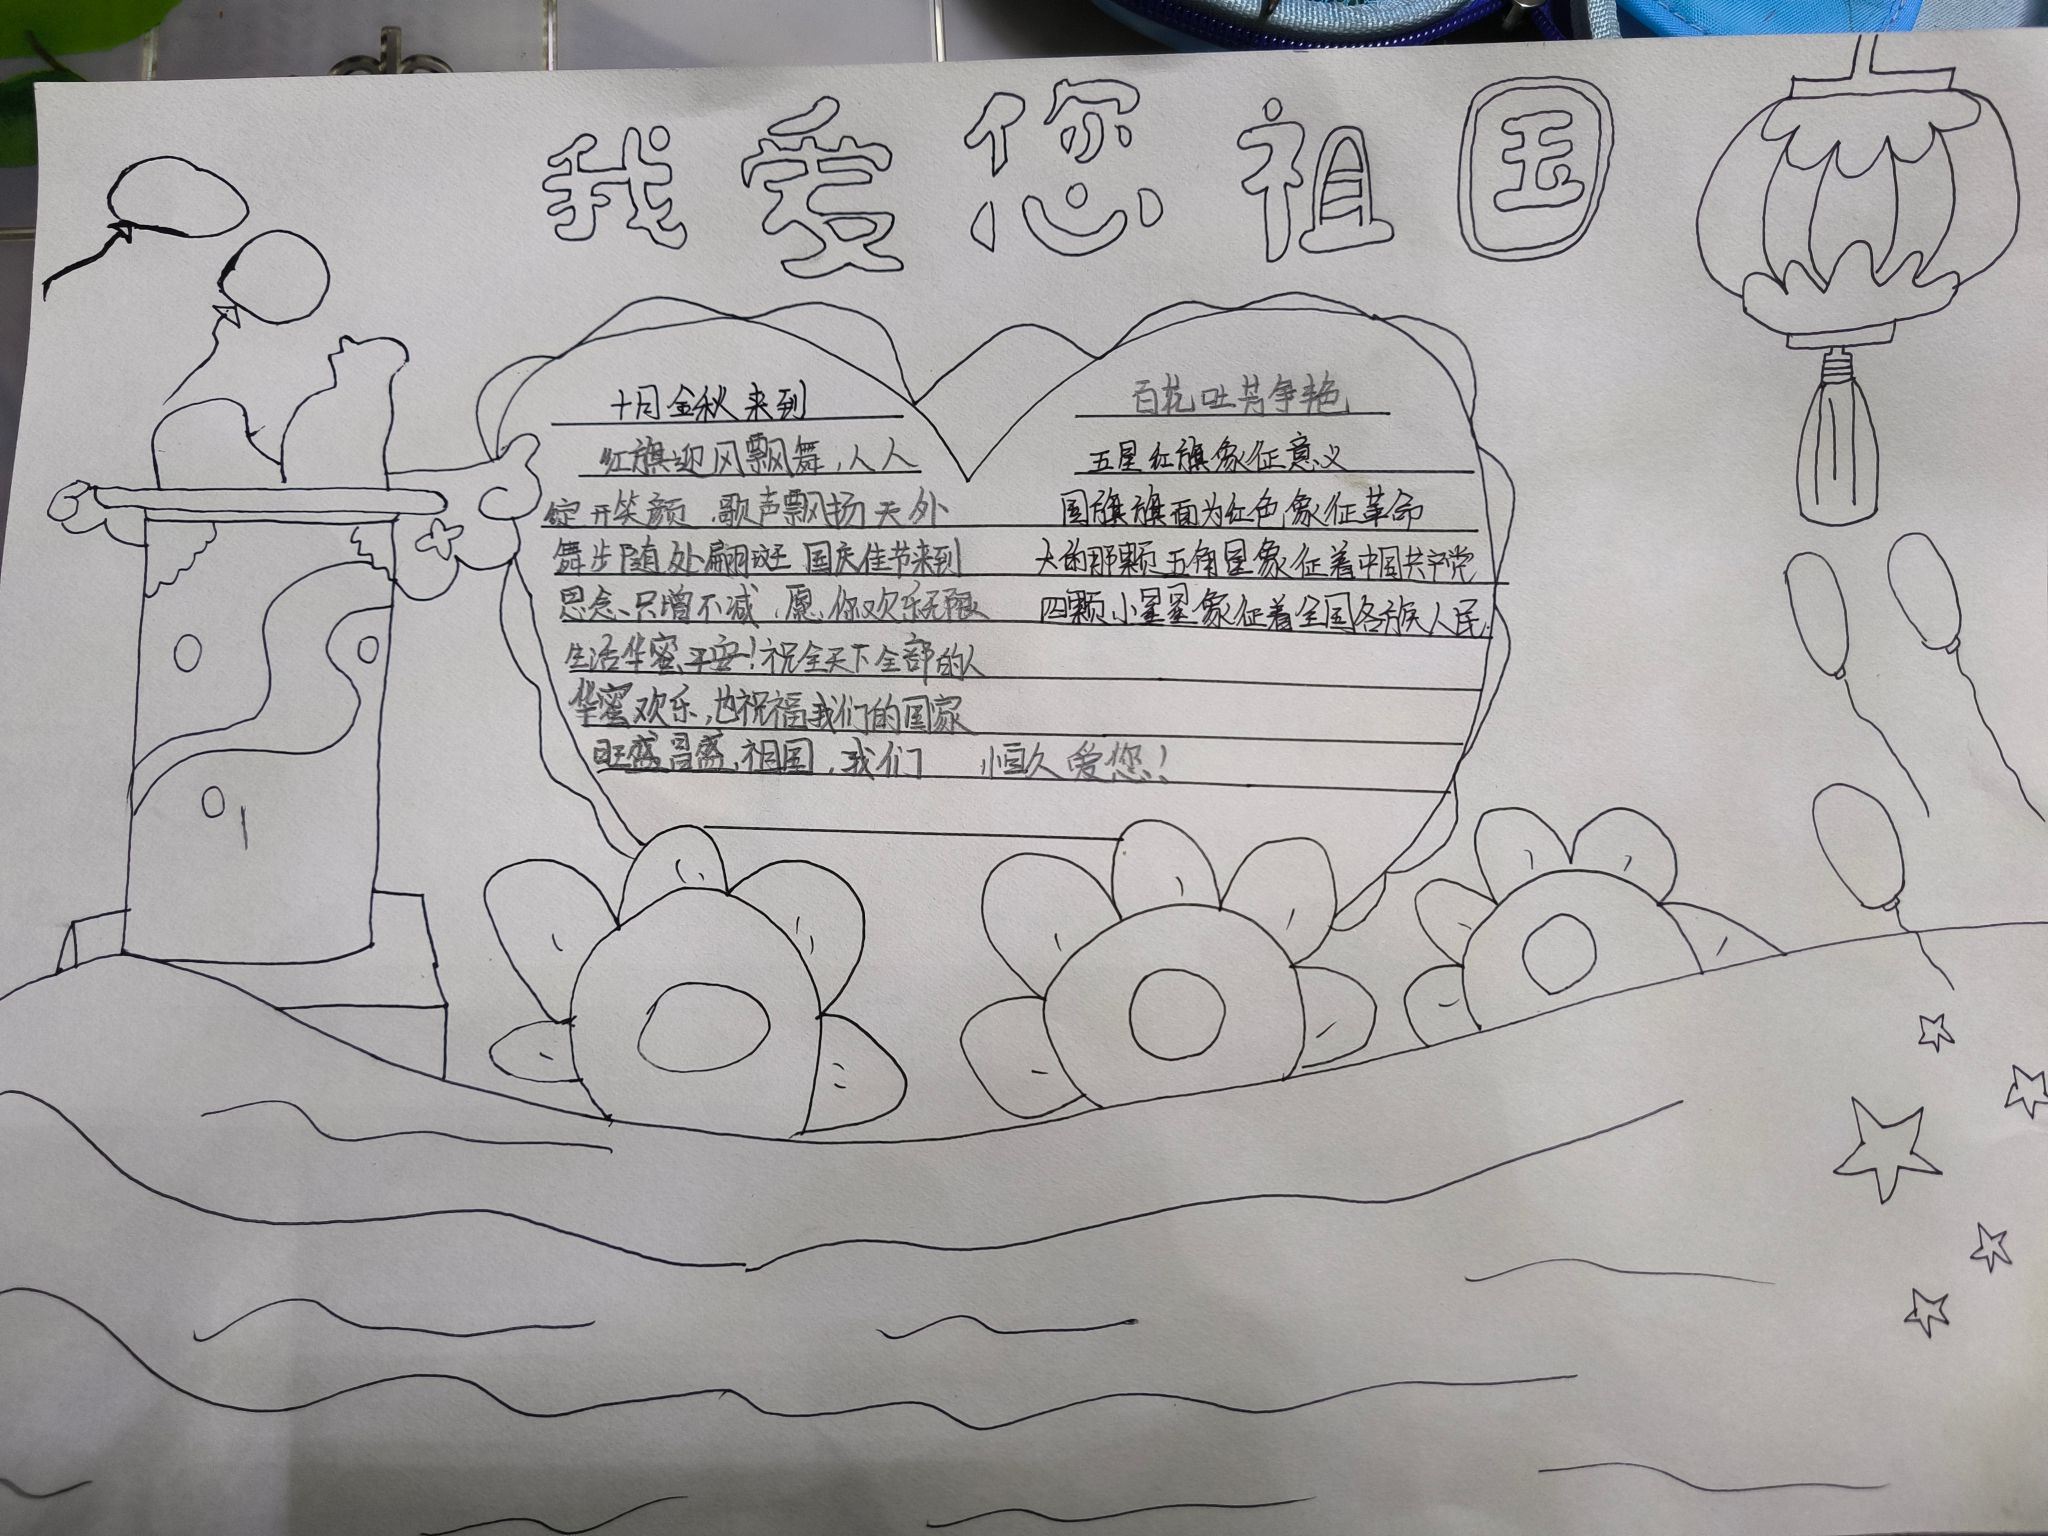 我爱您祖国
十月金秋来到
红旗迎风飘舞,人人
绽开笑颜,歌声飘扬天外
舞步随处翩斑 国庆佳节来到
思念、只增不减,愿、你欢乐无限
生活华蜜、平安!祝全天下全部的人
华蜜欢乐,也祝福我们的国家
旺盛昌盛、祖国,我们 恒久爱您!
百花吐芳争艳
五星红旗象征意义
国旗旗面为红色,象征革命
大的那颗五角星象征着中国共产党
四颗小星星象征着全国各族人民.